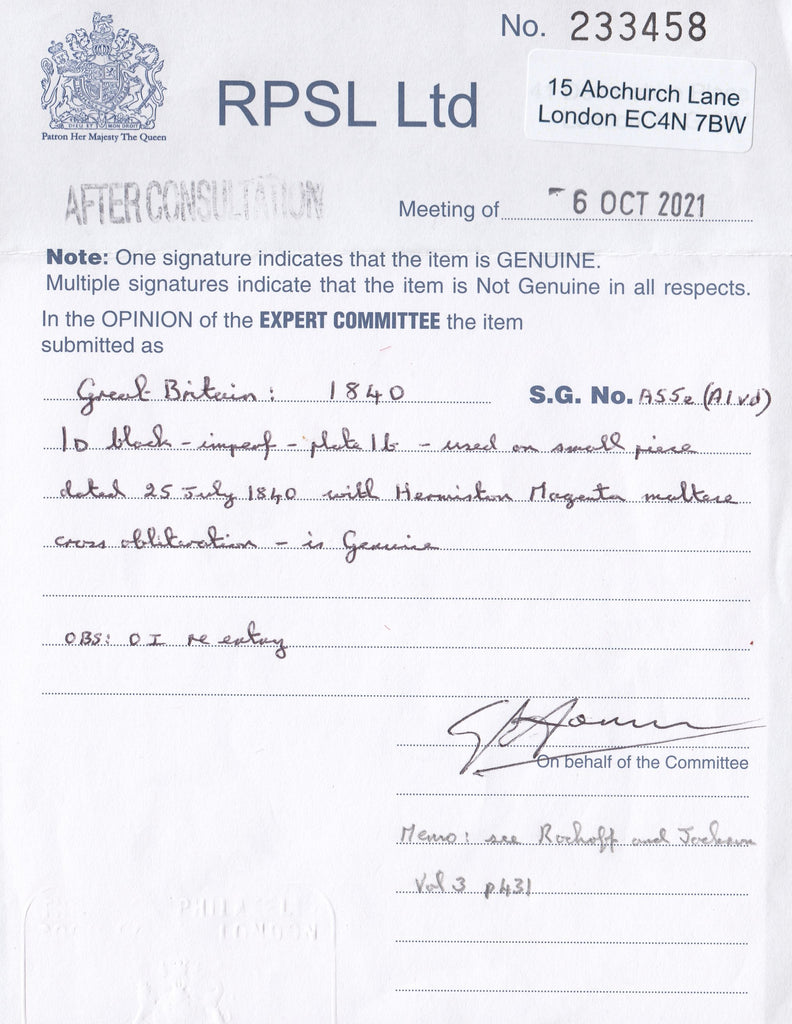 No. 233458
RPSL Ltd
15 Abchurch Lane
London EC4N 7BW
DIEU ET MON DROIT
Patron Her Majesty The Queen
AFTER CONSULTATION
Meeting of - 6 OCT 2021
Note: One signature indicates that the item is GENUINE.
Multiple signatures indicate that the item is Not Genuine in all respects.
In the OPINION of the EXPERT COMMITTEE the item
submitted as
Great Britain: 1840 S.G. No. AS5e (A1vd)
1D black - imperf - plate 1b - used on small piece
dated 25 July 1840 with Hermiston Magenta maltese
cross obliteration - is Genuine
OBS: OI re entry
On behalf of the Committee
Memo: see Rockoff and Jackson
Vol 3 p431